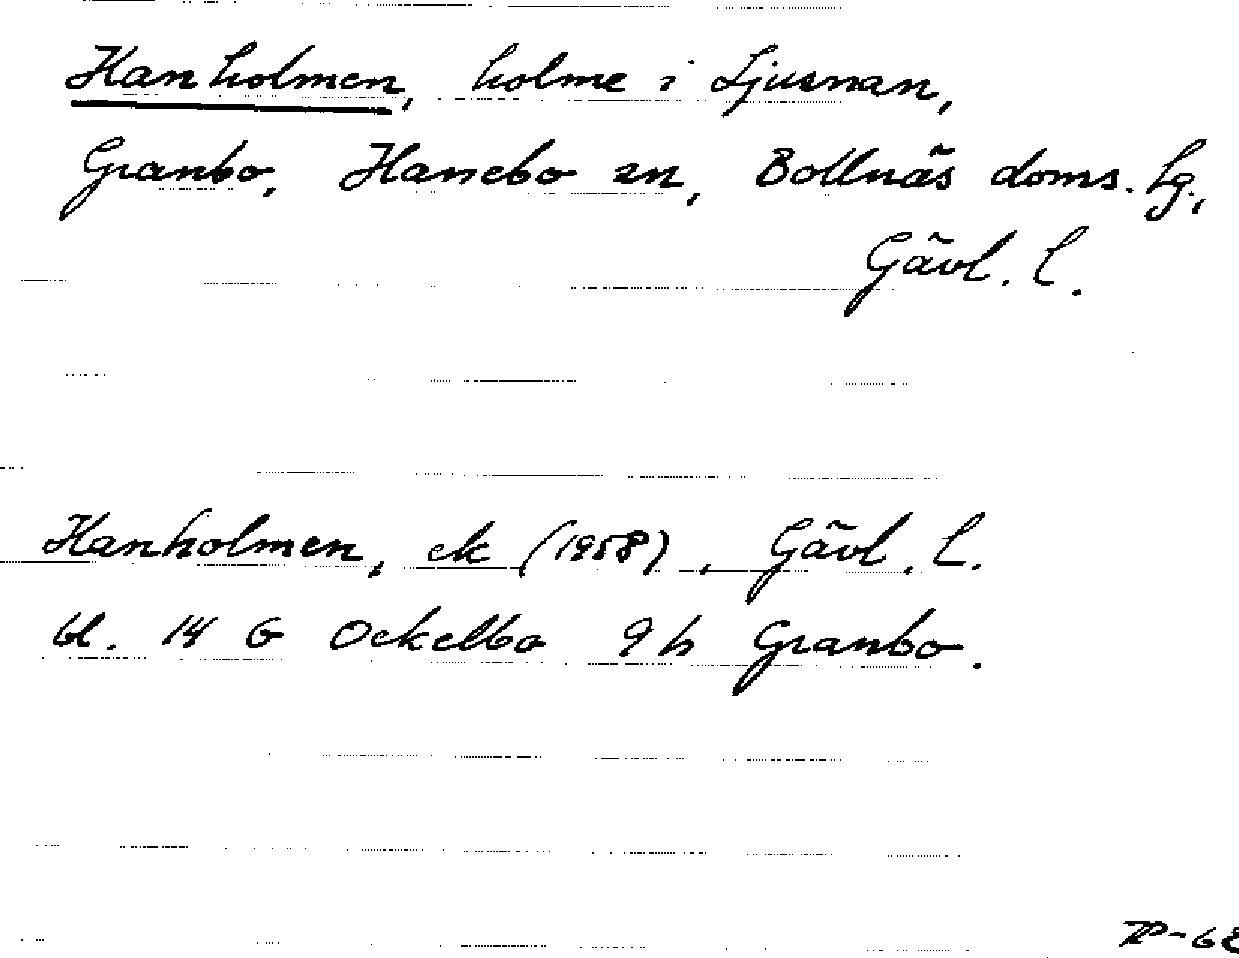 Hanholmen, holme i Ljusnan,
Granbo, Hanebo sn, Bollnäs doms. lg,
Gävl. l.
Hanholmen, ek (1958), Gävl. l.
bl. 14 G Ockelbo 9 h Granbo.